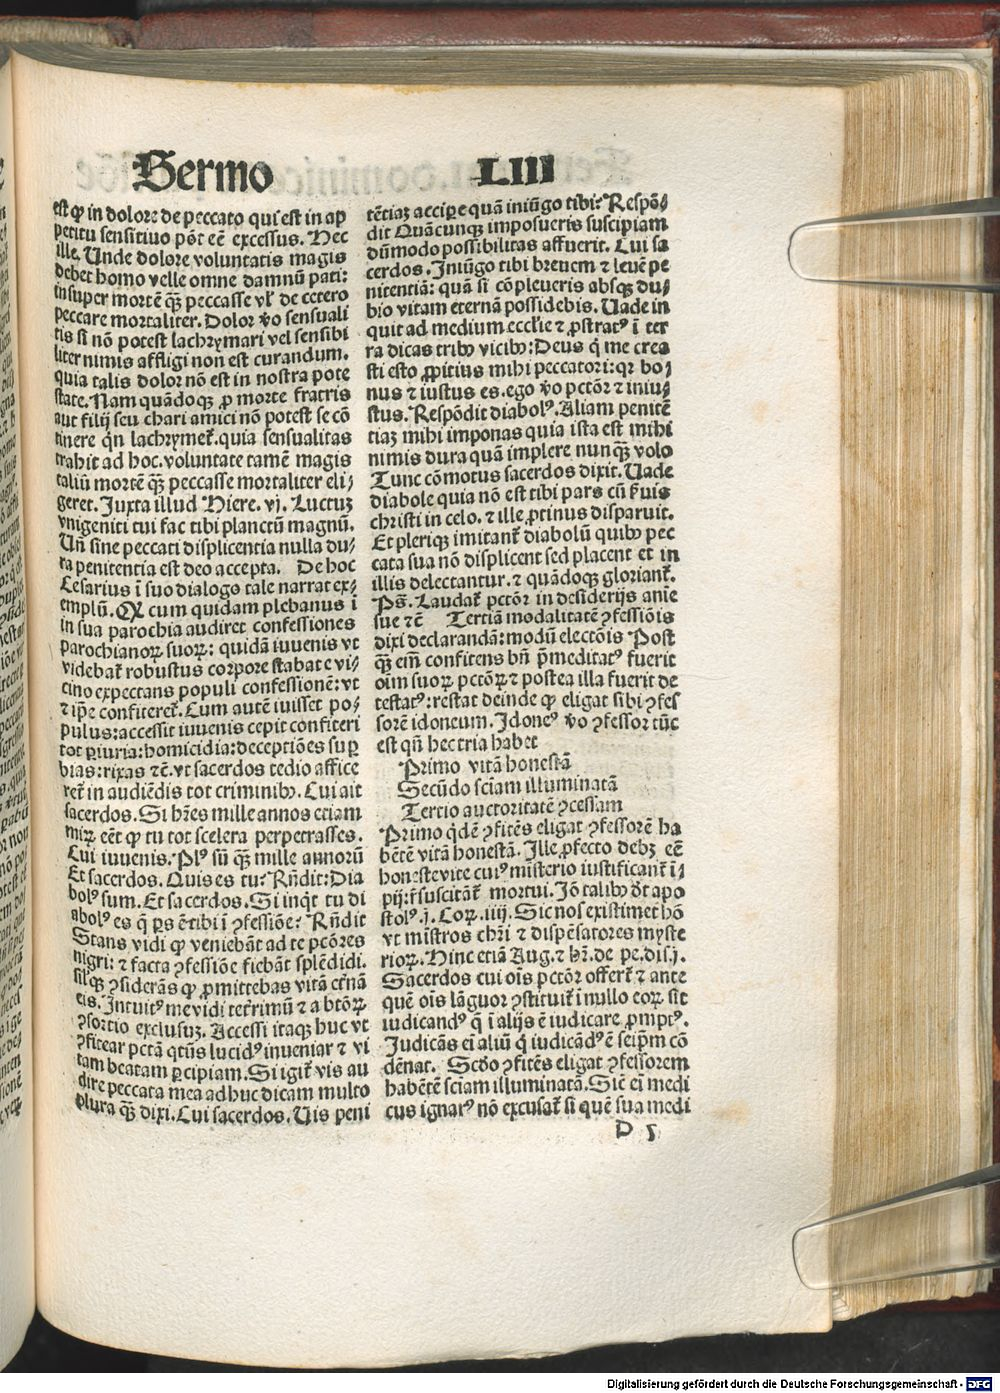 Sermo LIII
est ꝙ in dolore de peccato qui est in ap
petitu sensitiuo pōt eē excessus. Hec
ille. Unde dolore voluntatis magis
debet homo velle omne damnū pati:
insuper mortē qꝫ peccasse vl' de cetero
peccare mortaliter. Dolor ꝟo sensuali
tis si nō potest lachrymari vel sensibi
liter nimis affligi non est curandum.
quia talis dolor nō est in nostra pote
state. Nam quādoqꝫ ꝓ morte fratris
aut filij seu chari amici nō potest se cō
tinere qn̄ lachrymet̄. quia sensualitas
trahit ad hoc. voluntate tamē magis
taliū mortē qꝫ̄ peccasse mortaliter eli⸗
geret. Juxta illud Hiere. vj. Luctuꝫ
vnigeniti tui fac tibi planctū magnū.
Un̄ sine peccati displicentia nulla du⸗
ra penitentia est deo accepta. De hoc
Cesarius ī suo dialogo tale narrat ex⸗
emplū. Qꝛ cum quidam plebanus ī
in sua parochia audiret confessiones
parochianoꝝ suoꝝ: quidā iuuenis vt
videbat̄ robustus corpore stabat e vi⸗
cino expectans populi confessionē: vt
⁊ ip̄e confiteret̄. Cum autē iuisset po⸗
pulus: accessit iuuenis cepit confiteri
tot ꝑiuria: homicidia: deceptiōes suꝑ
bias: rixas ⁊c̄. vt sacerdos tedio affice
ret̄ in audiēdis tot criminibꝰ. Cui ait
sacerdos. Si hēs mille annos etiam
miꝝ eēt ꝙ tu tot scelera perpetrasses.
Cui iuuenis. Plꝰ sū qꝫ̄ mille annorū
Et sacerdos. Quis es tu: Rn̄dit: Dia
bolꝰ sum. Et sacerdos. Si inqt tu di
abolꝰ es q̄ ꝑs ē tibi ī ꝯfessiōe: Rn̄dit
Stans vidi ꝙ veniebāt ad te pctōres
nigri: ⁊ facta ꝯfessiōe fiebāt splēdidi.
silꝫ ꝯsiderās ꝙ ꝓmittebas vitā et̄nā
eis. Intuitꝰ me vidi tet̄rimū ⁊ a btōꝝ
ꝯsortio exclusuꝫ. Accessi itaqꝫ huc vt
ꝯfitear pctā qtūs lucidꝰ inueniar ⁊ vi
tam beatam ꝑcipiam. Si igit̄ vis au
dire peccata mea adhuc dicam multo
plura qꝫ̄ dixi. Cui sacerdos. Uis peni
tētiaꝫ accipe quā iniūgo tibi: Respō⸗
dit Quācunqꝫ imposueris suscipiam
dūmodo possibilitas affuerit. Cui sa
cerdos. Iniūgo tibi breuem ⁊ leuē pe
nitentiā: quā si cōpleueris absqꝫ du⸗
bio vitam eternā possidebis. Uade in
quit ad medium eccl'ie ⁊ ꝓstratꝰ ī ter
ra dicas tribꝰ vicibꝰ: Deus q̄ me crea
sti esto ꝓpitius mihi peccatori: qꝛ bo⸗
nus ⁊ iustus es. ego ꝟo pctōr ⁊ iniu⸗
stus. Respōdit diabolꝰ. Aliam penitē
tiaꝫ mihi imponas quia ista est mihi
nimis dura quā implere nunqꝫ̄ volo
Tunc cōmotus sacerdos dixit. Uade
diabole quia nō est tibi pars cū s̄uis
christi in celo. ⁊ ille ꝓtinus disparuit.
Et pleriqꝫ imitant̄ diabolū quibꝰ pec
cata sua nō displicent sed placent et in
illis delectantur. ⁊ quādoqꝫ gloriant̄.
Ps̄. Laudat̄ pctōr in desiderijs anie
sue ⁊c̄ Tertiā modalitatē ꝯfessiōis
dixi declarandā: modū electōis Post
qꝫ̄ em̄ confitens bn̄ p̄meditatꝰ fuerit
oīm suoꝝ pctōꝝ ⁊ postea illa fuerit de
testatꝰ: restat deinde ꝙ eligat sibi ꝯfes
sorē idoneum. Idoneꝰ ꝟo ꝯfessor tūc
est qn̄ hec tria habet
Primo vitā honestā
Secūdo sciam illuminatā
Tertio auctoritatē ꝯcessam
Primo qdē ꝯfitēs eligat ꝯfessorē ha
bētē vitā honestā. Ille ꝓfecto debꝫ eē
honeste vite cuiꝰ misterio iustificant̄ ī⸗
pij: ⁊ suscitāt̄ mortui. Jō talibꝰ d̄t apo
stolꝰ. j. Coꝝ. iiij. Sic nos existimet hō
vt mīstros chr̄i ⁊ dispēsatores myste
rioꝝ. Hinc etiā Aug. ⁊ hr̄. de pe. dis. j.
Sacerdos cui oīs pctōr offert̄ ⁊ ante
quē oīs lāguor ꝯstituit̄ ī nullo eoꝝ sit
iudicandꝰ q̄ ī alijs ē iudicare ꝓmptꝰ.
Judicās ei aliū q̄ iudicādꝰ ē seip̄m cō
dēnat. Scdo ꝯfitēs eligat ꝯfessorem
habētē sciam illuminatā. Sic ei medi
cus ignarꝰ nō excusat̄ si quē sua medi
D 5
Digitalisierung gefördert durch die Deutsche Forschungsgemeinschaft - DFG